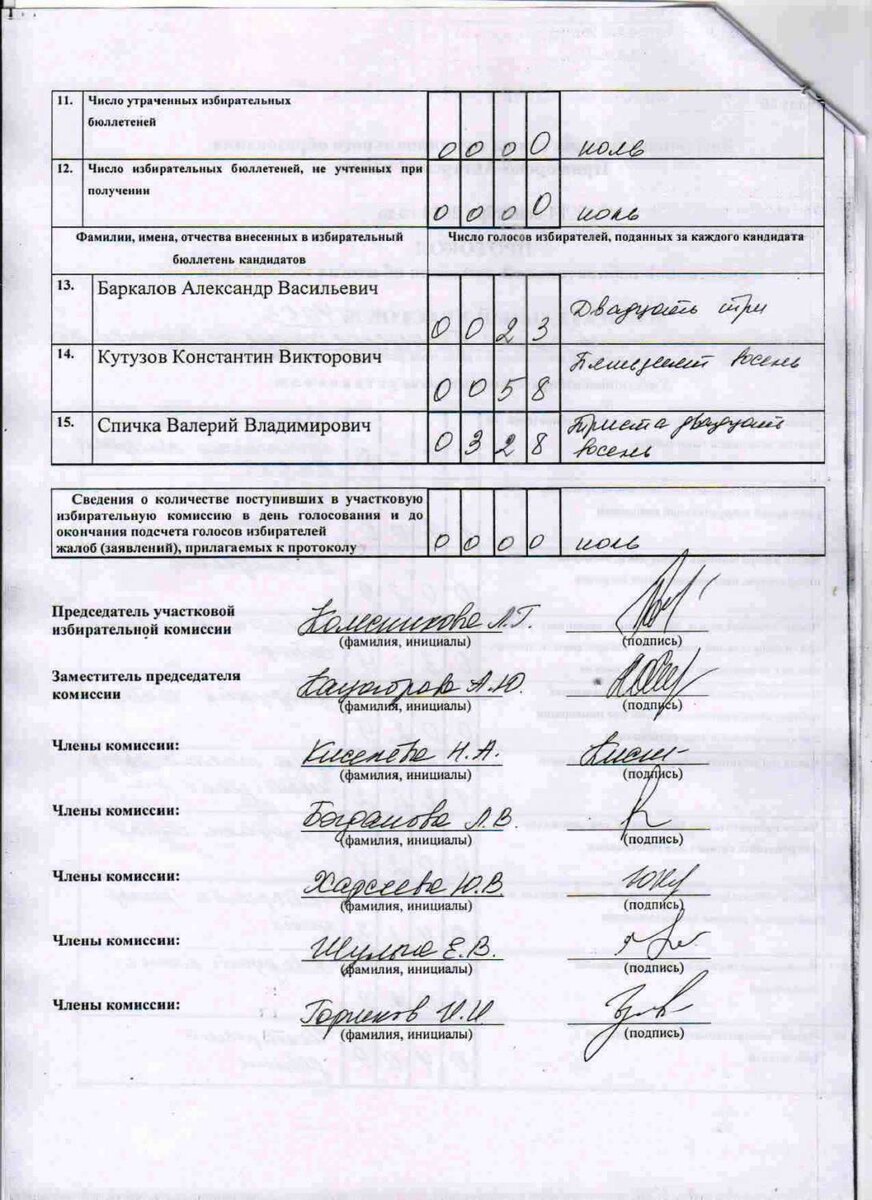 11. Число утраченных избирательных
бюллетеней 0 0 0 0 ноль
12. Число избирательных бюллетеней, не учтенных при
получении 0 0 0 0 ноль
Фамилии, имена, отчества внесенных в избирательный
бюллетень кандидатов
Число голосов избирателей, поданных за каждого кандидата
13. Баркалов Александр Васильевич
0 0 2 3 Двадцать три
14. Кутузов Константин Викторович
0 0 5 8 Пятьдесят восемь
15. Спичка Валерий Владимирович
0 3 2 8 Триста двадцать
восемь
Сведения о количестве поступивших в участковую
избирательную комиссию в день голосования и до
окончания подсчета голосов избирателей
жалоб (заявлений), прилагаемых к протоколу 0 0 0 0 ноль
Председатель участковой
избирательной комиссии Колесникова Л.Г.
(фамилия, инициалы) (подпись)
Заместитель председателя
комиссии А.Ю.
(фамилия, инициалы) (подпись)
Члены комиссии: Киселева Н.А.
(фамилия, инициалы) (подпись)
Члены комиссии: Богданова Л.В.
(фамилия, инициалы) (подпись)
Члены комиссии: Ю.В.
(фамилия, инициалы) (подпись)
Члены комиссии: Шульга Е.В.
(фамилия, инициалы) (подпись)
Члены комиссии: И.И
(фамилия, инициалы) (подпись)